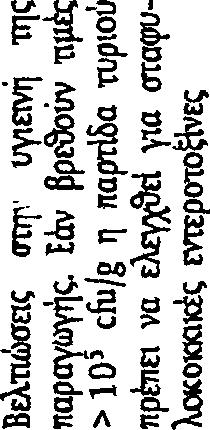 Βελτιώσεις στην υγιεινή της
παραγωγής. Εάν βρεθούν τιμές
> 10⁵ cfu/g η παρτίδα τυριού
πρέπει να ελεγχθεί για σταφυ-
λοκοκκικές εντεροτοξίνες